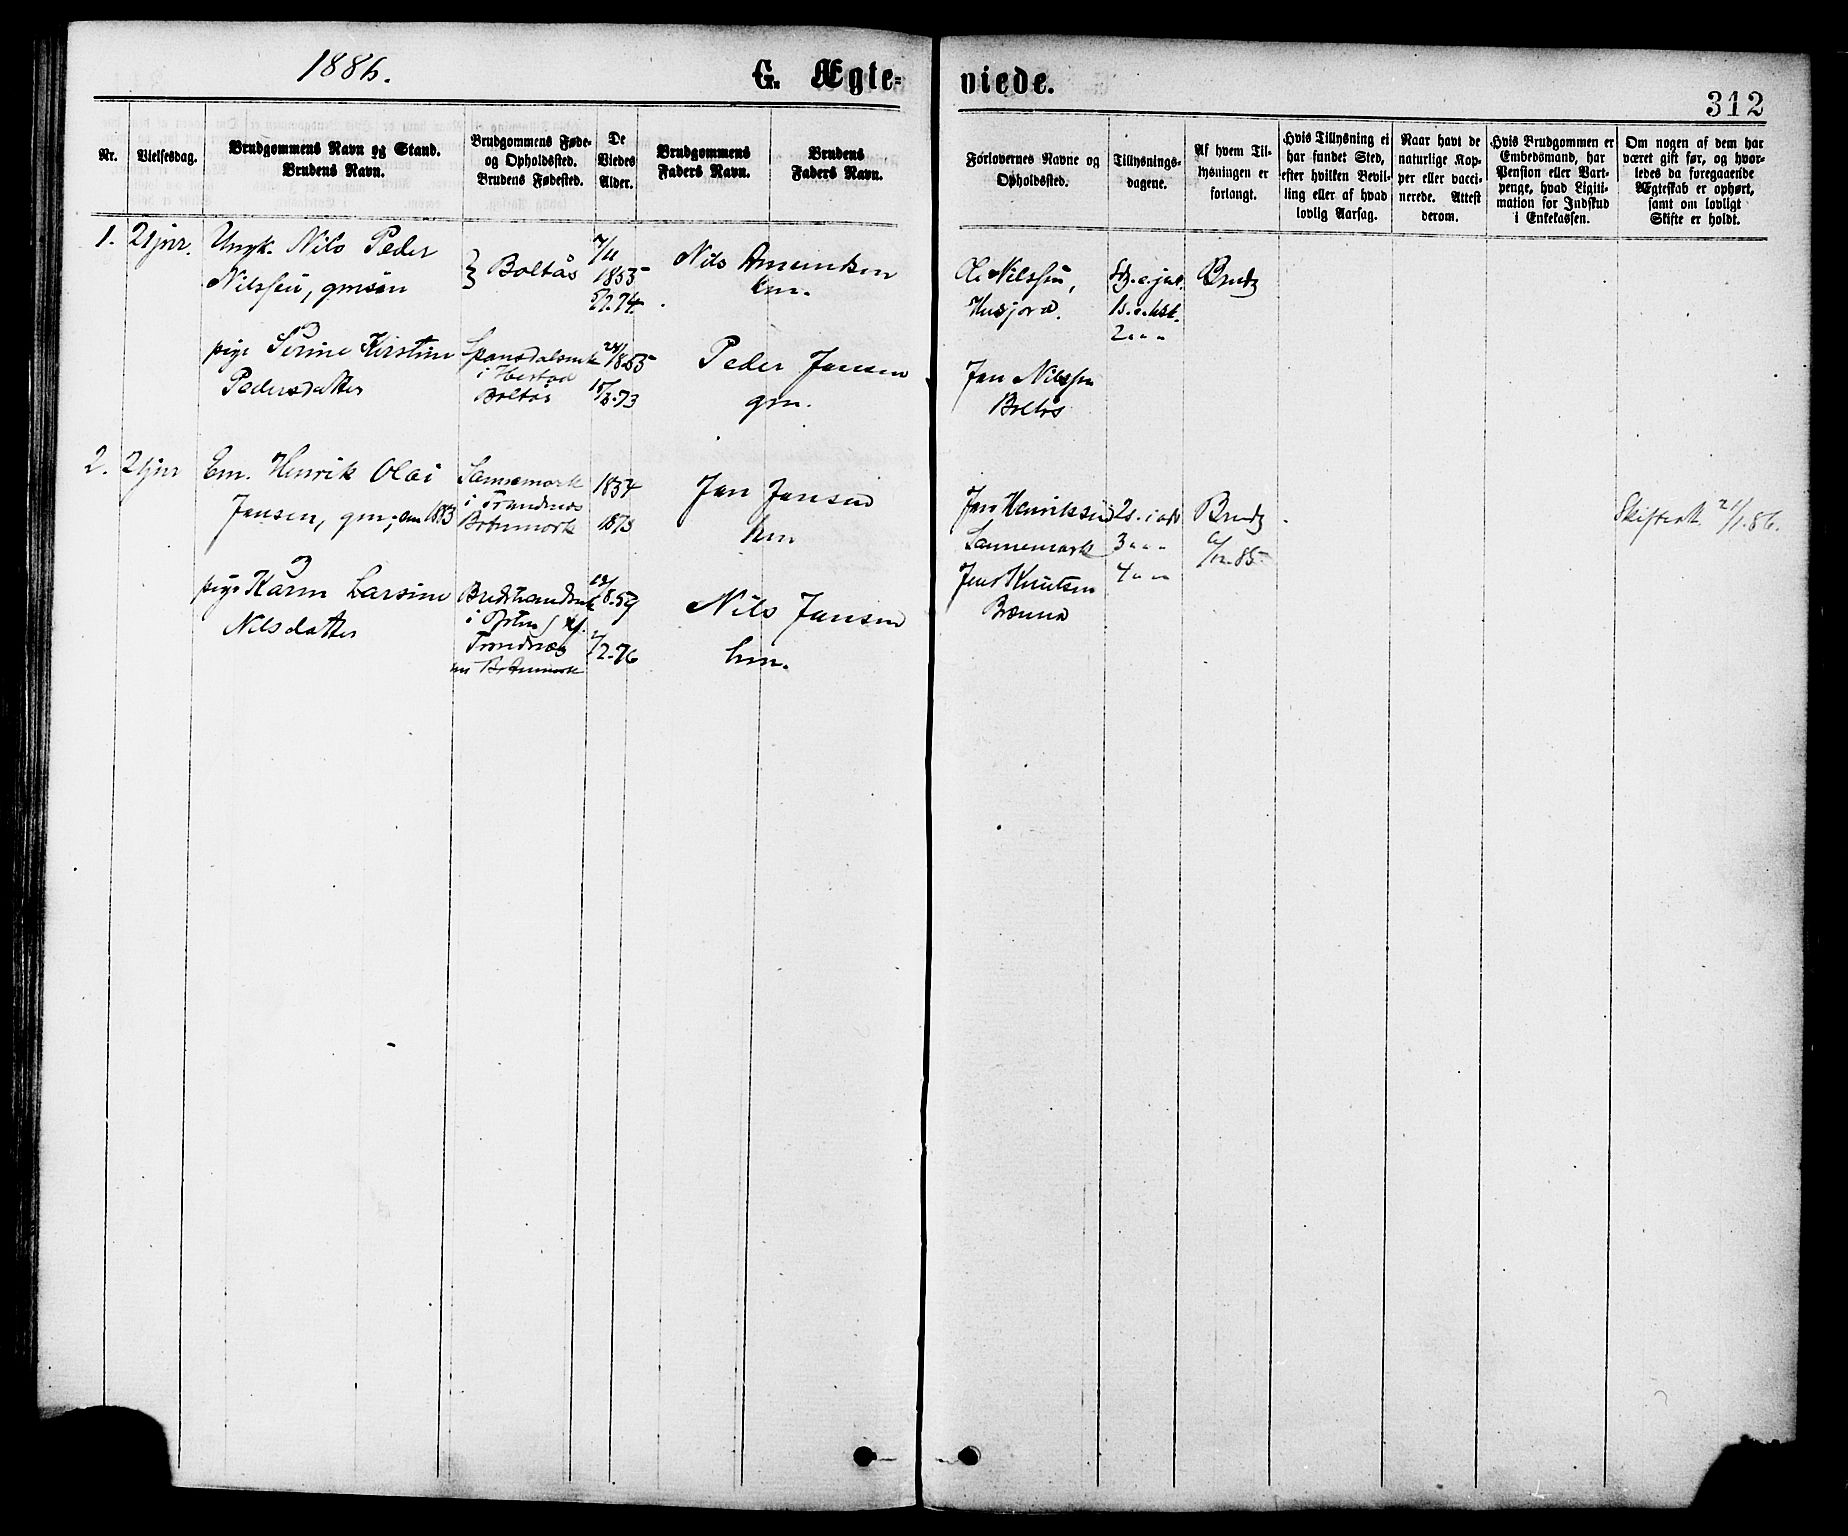 1886.
G. Ægte-
viede.
312
Nr.
Vielsesdag.
Brudgommens Navn og Stand.
Brudens Navn.
Brudgommens Føde-
og Opholdssted.
Brudens Fødested.
De
Viedes
Alder.
Brudgommens
Faders Navn.
Brudens
Faders Navn.
Forlovernes Navne og
Opholdssted.
Tillysnings-
dagene.
Af hvem Til-
lysningen er
forlangt.
Hvis Tillysning ei
har fundet Sted,
efter hvilken Bevil-
ling eller af hvad
lovlig Aarsag.
Naar havt de
naturlige Kop-
per eller vacci-
nerede. Attest
derom.
Hvis Brudgommen er
Embedsmand, har
Pension eller Vart-
penge, hvad Ligiti-
mation for Indskud
i Enkekassen.
Om nogen af dem har
været gift før, og hvor-
ledes da foregaaende
Ægteskab er ophørt,
samt om lovligt
Skifte er holdt.
1.
21jnr.
Ungk. Nils Peder
Nilssen, gmsøn
Boltås
7/11
1855
Nils Amundsen
Ole Nilssen,
2 " "
Brudg
pige Serine Kirstine
Pedersdatter
Boltås
Peder Jansen
gm.
Jan Nilssen
Boltås
2.
21jnr
Em. Henrik Olai
Jansen, gm; em 1883
Sannemark
i Trondenæs
Botnmark
1834
1873
Jan Jansen
hm
Jan Henrikssen
Sannemark
2s. i adv
3 " "
4 " "
Brudg
Skifteatt. 21/1.86.
pige Karen Larsine
Nilsdatter
i Ofoten
Trondnæs
Botnmark
2/2.76
Nils Jansen
hm.
Jens Knutsen